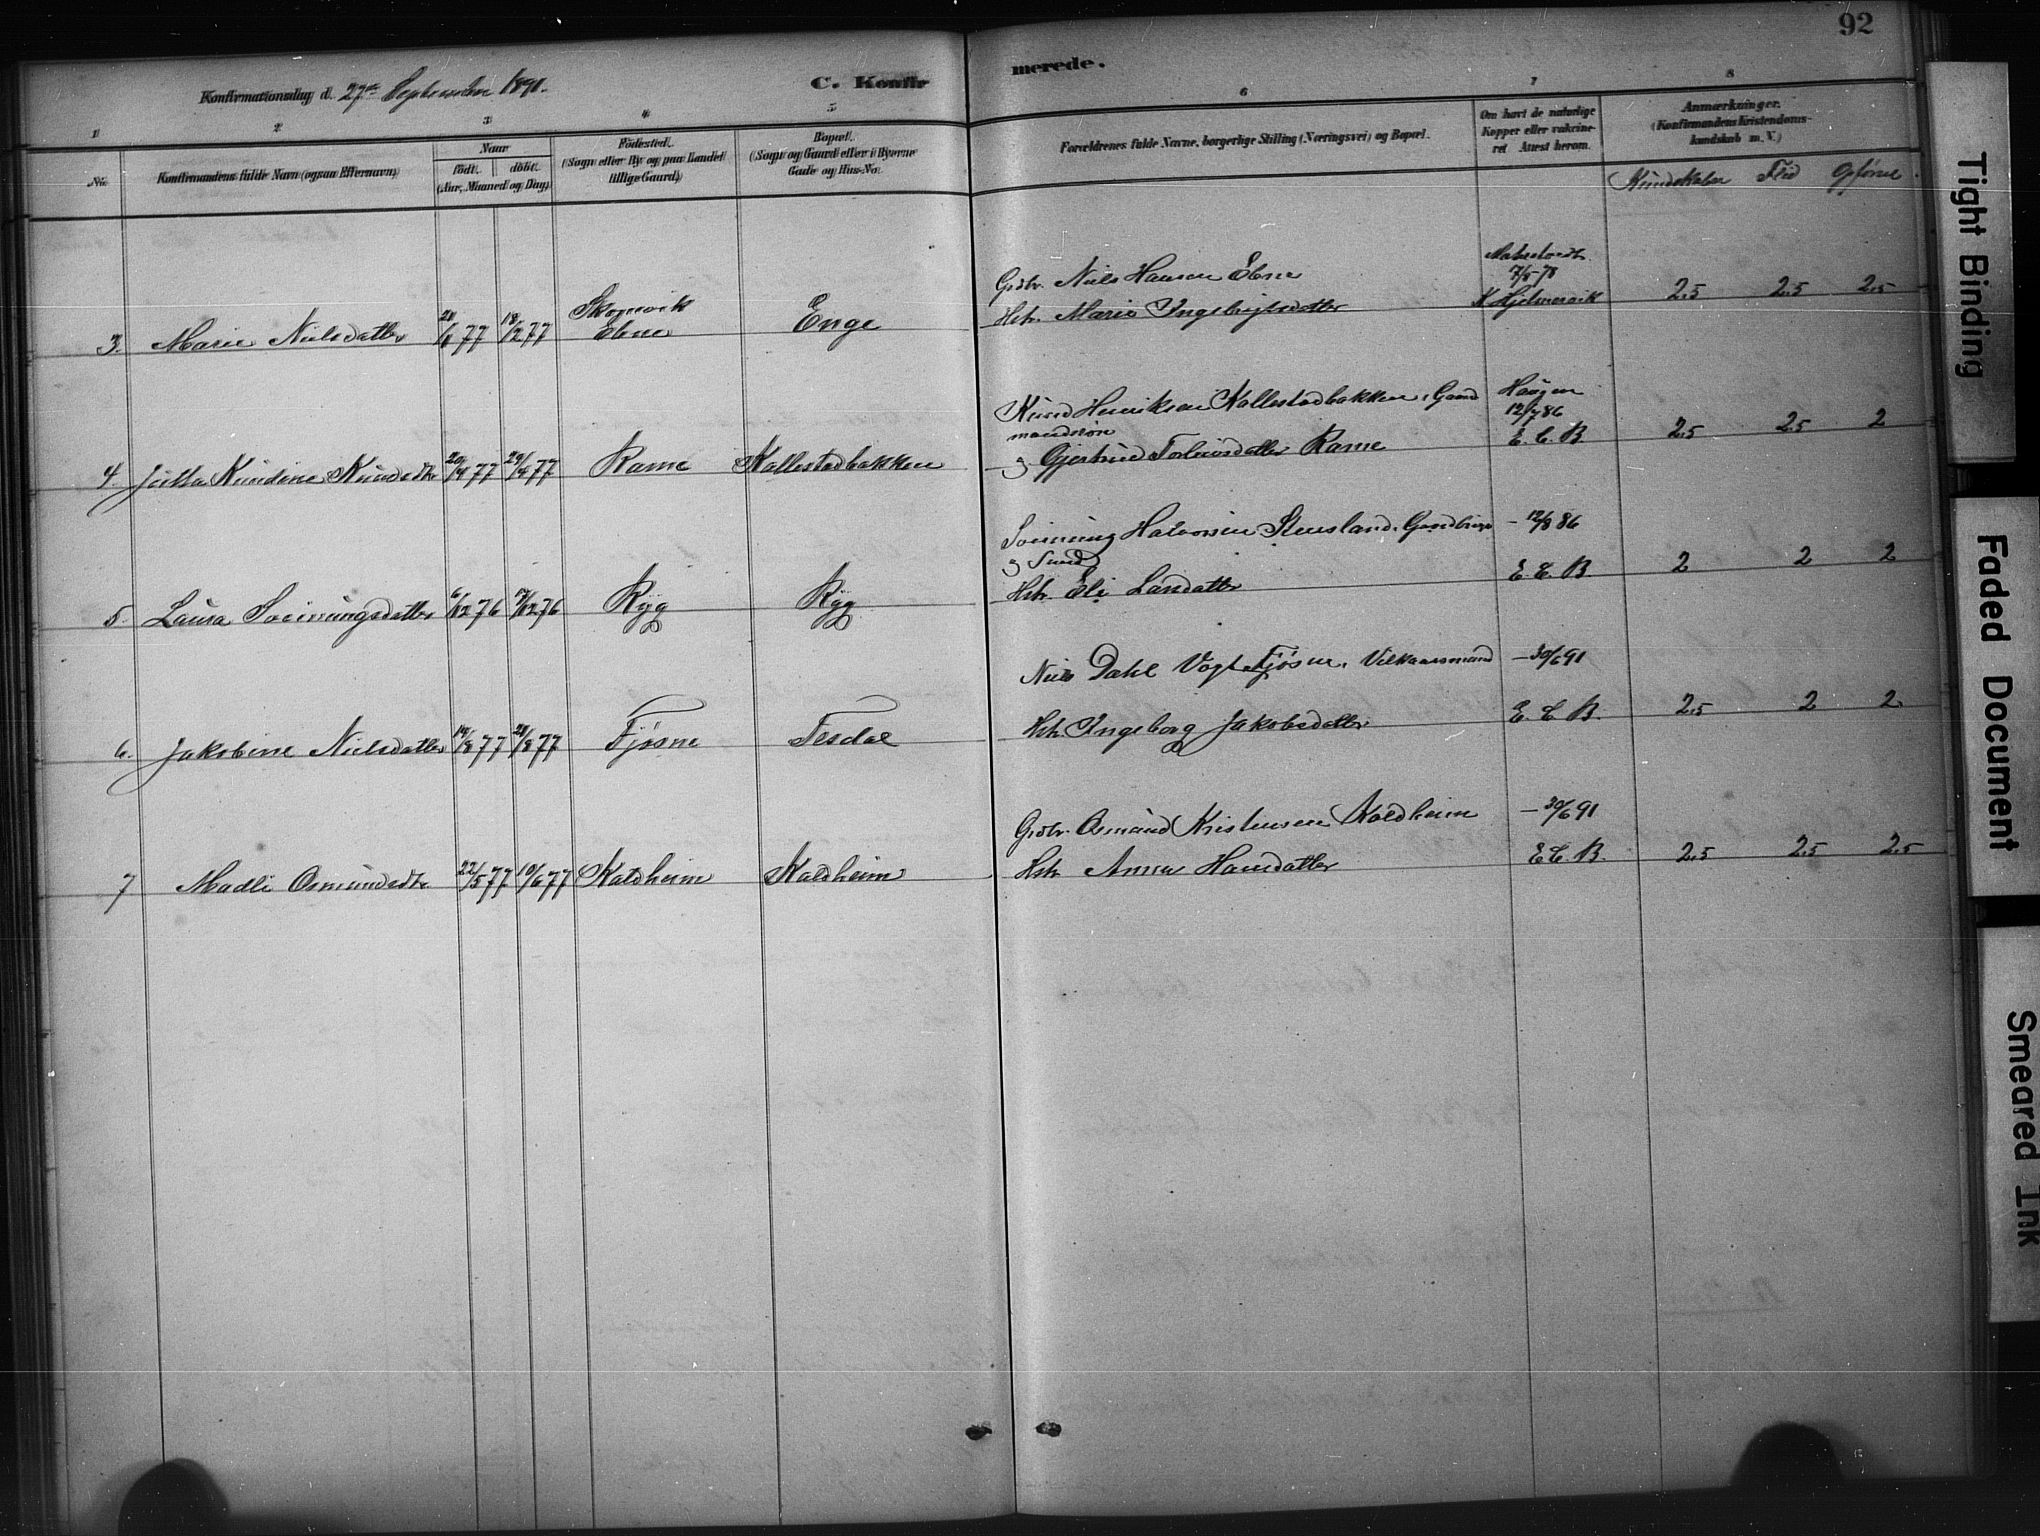 92
Konfirmationsdag d. 27de September 1891.
C. Konfir
merede.
1 2 3 4 5 6 7 8
No.
Konfirmandens fulde Navn (ogsaa Efternavn)
Naar
født. døbt.
(Aar, Maaned og Dag)
Fødested.
(Sogn eller By og paa Landet
tillige Gaard)
Bopæl.
(Sogn og Gaard eller i Byerne
Gade og Hus-No.
Forældrenes fulde Navne, borgerlige Stilling (Næringsvei) og Bopæl.
Om havt de naturlige
Kopper eller vakcine-
ret Attest herom.
Anmærkninger.
(Konfirmandens Kristendoms-
kundskab m. V.)
Kundskaber Flid Opførsel
Grdbr. Niels Hansen Ebne
Hstr. Marie Ingebrigtsdatter
7/5-78
K Hjelmervik
2,5 2,5 2,5
3. Marie Nielsdatter 77 18/2 77 Skonevik Ebne Enge
Knud Henriksen Kallestadbakken, Gaard
mandssøn
og Gjertrud Torbiørsdatter Rame
Haugen
12/7 86
E. C. B.
2,5 2,5 2
4. Jutta Knudine Knudsdtr 20/4 77 29/4 77 Rame Kallestadbakken
Sveinung Halvorsen Stensland, Gaardbruger
og Smed
Hstr. Eli Larsdatter
- 12/8 86
E. C. B.
2 2 2
5. Laura Sveinungsdatter 6/12 76 17/12 76 Ryg Ryg
Niels Dahl Vogt Fjøsne, Vilkaarsmand
Hstr. Ingeborg Jakobsdatter
- 30/6 91
E. C. B.
2,5 2 2
6. Jakobine Nielsdatter 14/8 77 26/8 77 Fjøsne Tesdal
Grdbr. Osmund Kristensen Koldheim
Hstr. Anna Hansdatter
- 30/6 91
E C. B.
2,5 2,5 2,5
7 Madli Osmundsdtr 22/5 77 10/6 77 Kaldheim Kaldheim
Tight Binding
Faded Document
Smeared Ink